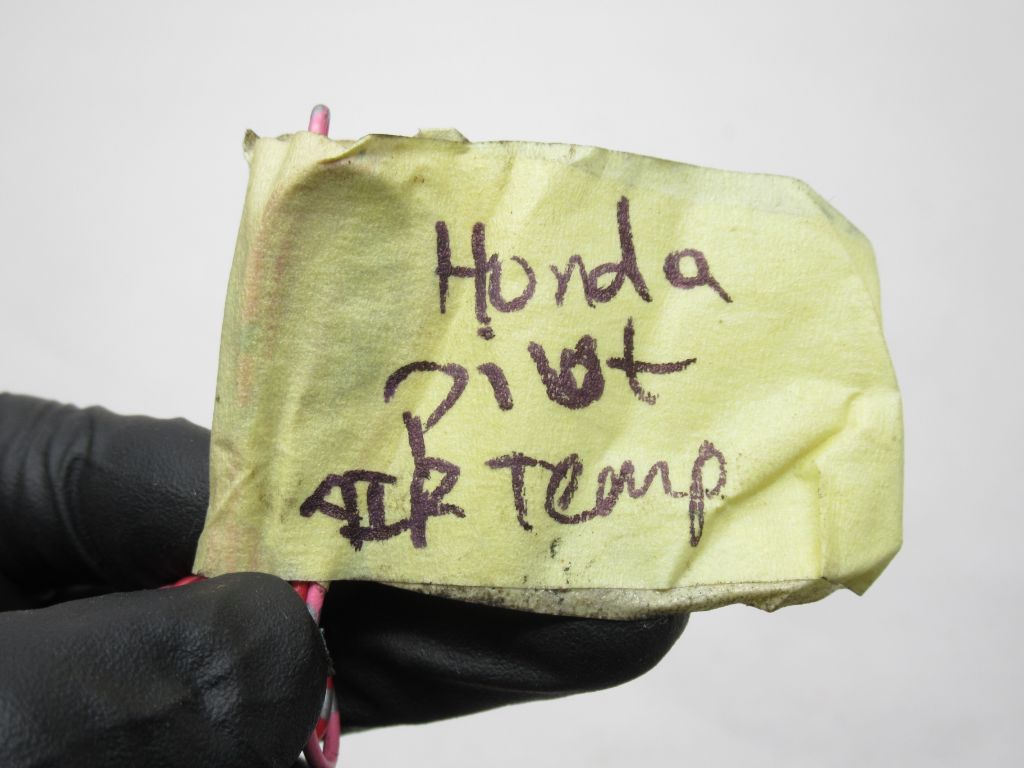 Honda
Pilot
AIR Temp